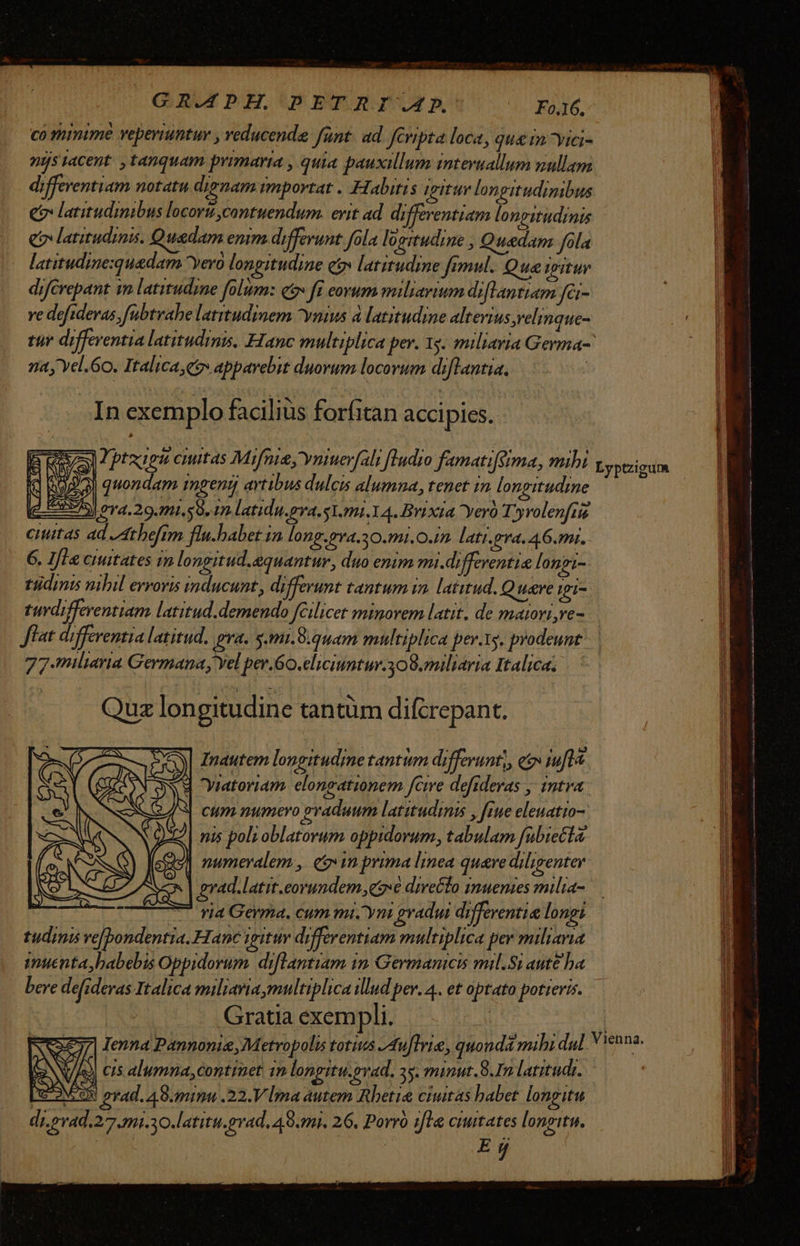 GRAPH. PETRI AP. Fo.16.
cõ minimè reperiuntur, reducenda sunt ad scripta loca, quæ in vici-
nijs iacent, tanquam primaria, quia pauxillum interuallum nullam
differentiam notatu dignam importat. Habitis igitur longitudinibus
& latitudinibus locorũ, contuendum erit ad differentiam longitudinis
& latitudinis. Quædam enim differunt sola lõgitudine, Quædam sola
latitudine: quædam verò longitudine & latitudine simul. Quæ igitur
discrepant in latitudine solùm: & si eorum miliarium distantiam sci-
re desideras, subtrahe latitudinem vnius à latitudine alterius, relinque-
tur differentia latitudinis. Hanc multiplica per. 15. miliaria Germa-
na, vel.60. Italica, & apparebit duorum locorum distantia.
In exemplo faciliùs forsitan accipies.
Yptzigũ ciuitas Misniæ, vniuersali studio famatissima, mihi
Lyptzigum
quondam ingenij artibus dulcis alumna, tenet in longitudine
gra.29.mi.58. in latidu.gra.51.mi.14. Brixia verò Tyrolensiũ
ciuitas ad Athesim flu. habet in long.gra.30.mi.0.in lati.gra.46.mi.
6. Istæ ciuitates in longitud.æquantur, duo enim mi.differentiæ longi-
tudinis nihil erroris inducunt, differunt tantum in latitud. Quare igi-
turdifferentiam latitud.demendo scilicet minorem latit. de maiori, re-
stat differentia latitud. gra. 5.mi.8.quam multiplica per.15. prodeunt
77.miliaria Germana, vel per.60.eliciuntur.308.miliaria Italica.
Quæ longitudine tantùm discrepant.
Inautem longitudine tantùm differunt, & iustã
viatoriam elongationem scire desideras, intra
cum numero graduum latitudinis, siue eleuatio-
nis poli oblatorum oppidorum, tabulam subiectã
numeralem, & in prima linea quære diligenter
grad.latit.eorundem, & è directo inuenies milia-
ria Germa. cum mi. vni gradui differentiæ longi
tudinis respondentia. Hanc igitur differentiam multiplica per miliaria
inuenta, habebis Oppidorum distantiam in Germanicis mil. Si autẽ ha
bere desideras Italica miliaria, multiplica illud per. 4. et optato potieris.
Gratia exempli.
Ienna Pannoniæ, Metropolis totius Austriæ, quondã mihi dul
Vienna.
cis alumna, continet in longitu.grad. 35. minut.8.In latitudi.
grad.48.minu.22.Vlma autem Rhetiæ ciuitas habet longitu
di.grad.27.mi.30.latitu.grad.48.mi. 26. Porrò istæ ciuitates longitu.
E ij